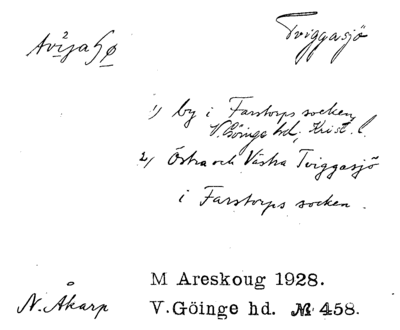 Tviggasjö
1) by i Farstorps socken,
V. Göinge hd, Krist. l.
2) Östra och Västra Tviggasjö
i Farstorps socken.
M Areskoug 1928.
N. Åkarp V.Göinge hd. № 458.